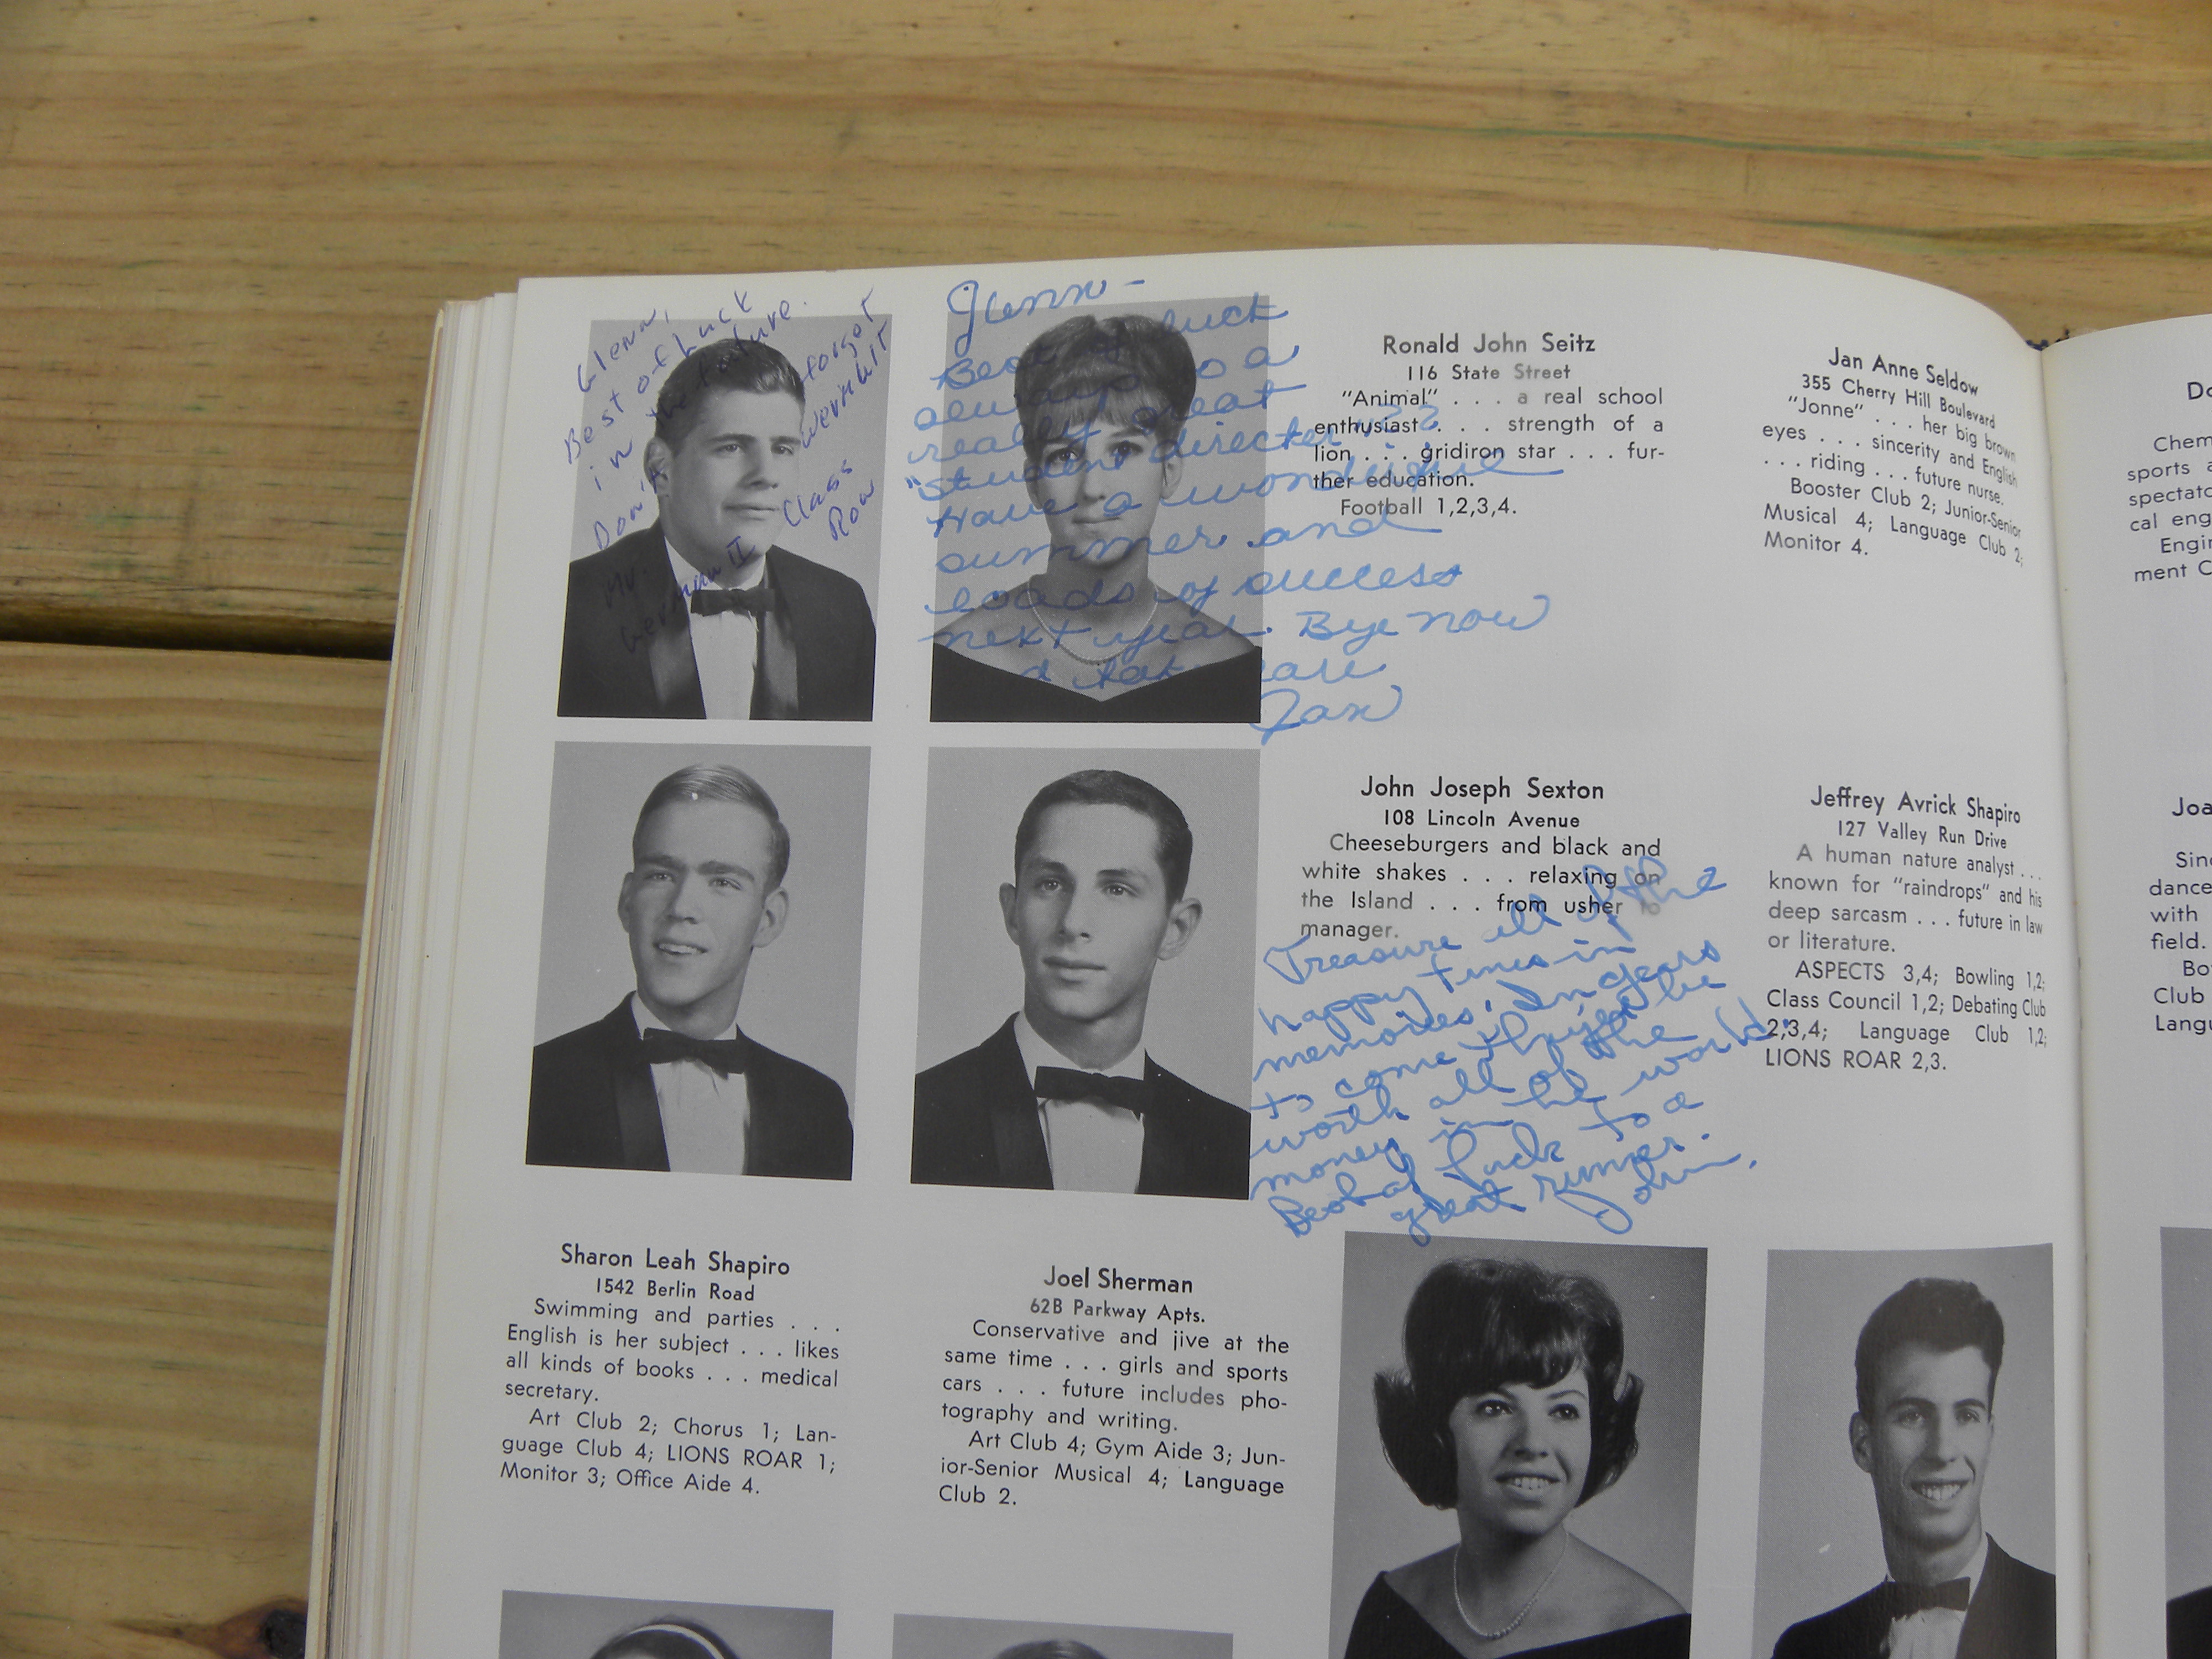 Glenn,
Best of Luck
in the future.
Don't forget
Mr. Werkheit
German II Class
Ron
Glenn -
Best of luck
always to a
really great
"student director"??
Have a wonderful
summer and
loads of success
next year. Bye now
care
Jan
Ronald John Seitz
116 State Street
"Animal" . . . a real school
enthusiast . . . strength of a
lion . . . gridiron star . . . fur-
ther education.
Football 1,2,3,4.
Jan Anne Seldow
355 Cherry Hill Boulevard
"Jonne" . . . her big brown
eyes . . . sincerity and English
. . . riding . . . future nurse.
Booster Club 2; Junior-Senior
Musical 4; Language Club 2;
Monitor 4.
John Joseph Sexton
108 Lincoln Avenue
Cheeseburgers and black and
white shakes . . . relaxing on
the Island . . . from usher to
manager.
Treasure all of the
happy times in
memories. In years
to come they'll be
worth all of the
money in the world.
Best of luck to a
great runner.
John
Jeffrey Avrick Shapiro
127 Valley Run Drive
A human nature analyst . . .
known for "raindrops" and his
deep sarcasm . . . future in law
or literature.
ASPECTS 3,4; Bowling 1,2;
Class Council 1,2; Debating Club
2,3,4; Language Club 1,2;
LIONS ROAR 2,3.
Sharon Leah Shapiro
1542 Berlin Road
Swimming and parties . . .
English is her subject . . . likes
all kinds of books . . . medical
secretary.
Art Club 2; Chorus 1; Lan-
guage Club 4; LIONS ROAR 1;
Monitor 3; Office Aide 4.
Joel Sherman
62B Parkway Apts.
Conservative and jive at the
same time . . . girls and sports
cars . . . future includes pho-
tography and writing.
Art Club 4; Gym Aide 3; Jun-
ior-Senior Musical 4; Language
Club 2.
Do
Chem
sports a
spectato
cal eng
Engin
ment C
Joa
Sinc
dance
with
field.
Bo
Club
Langu